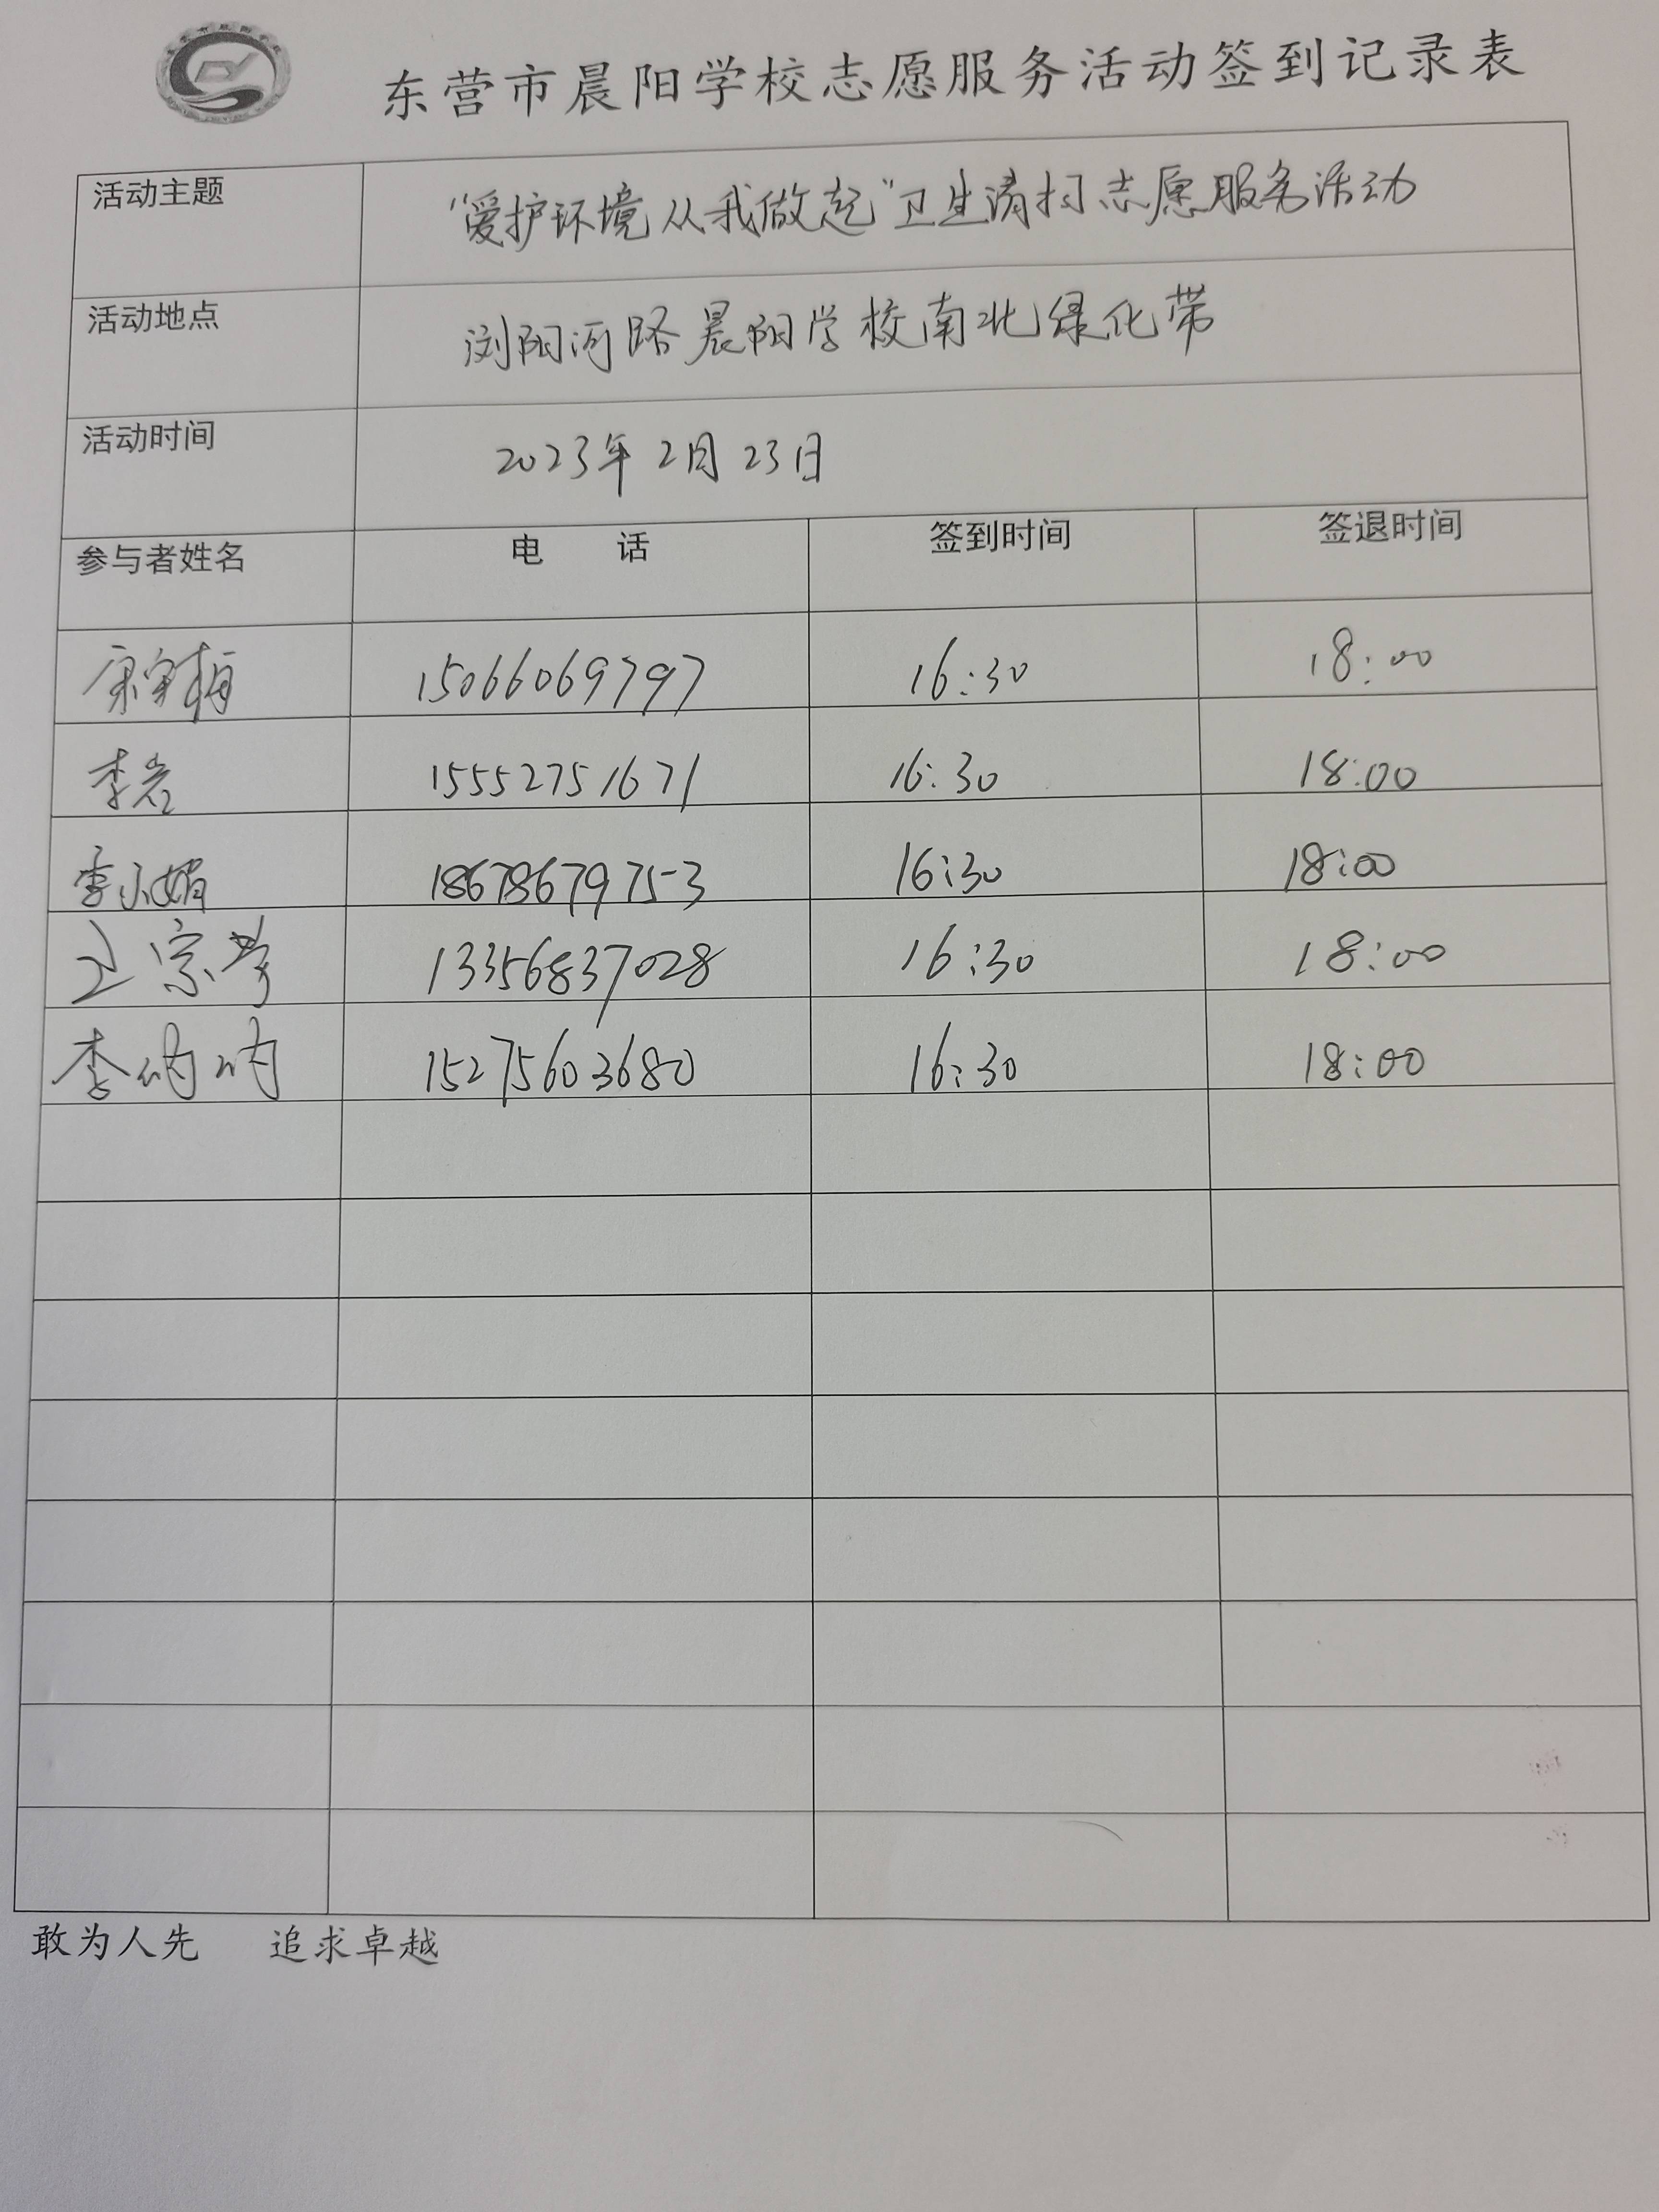 东营市晨阳学校志愿服务活动签到记录表
活动主题 “爱护环境从我做起”卫生清扫志愿服务活动
活动地点 浏阳河路晨阳学校南北绿化带
活动时间 2023年2月23日
参与者姓名 电 话 签到时间 签退时间
15066069797 16:30 18:00
李岩 15552751671 16:30 18:00
李小娟 18678679753 16:30 18:00
王宗芳 13356837028 16:30 18:00
李呐呐 15275603680 16:30 18:00
敢为人先 追求卓越